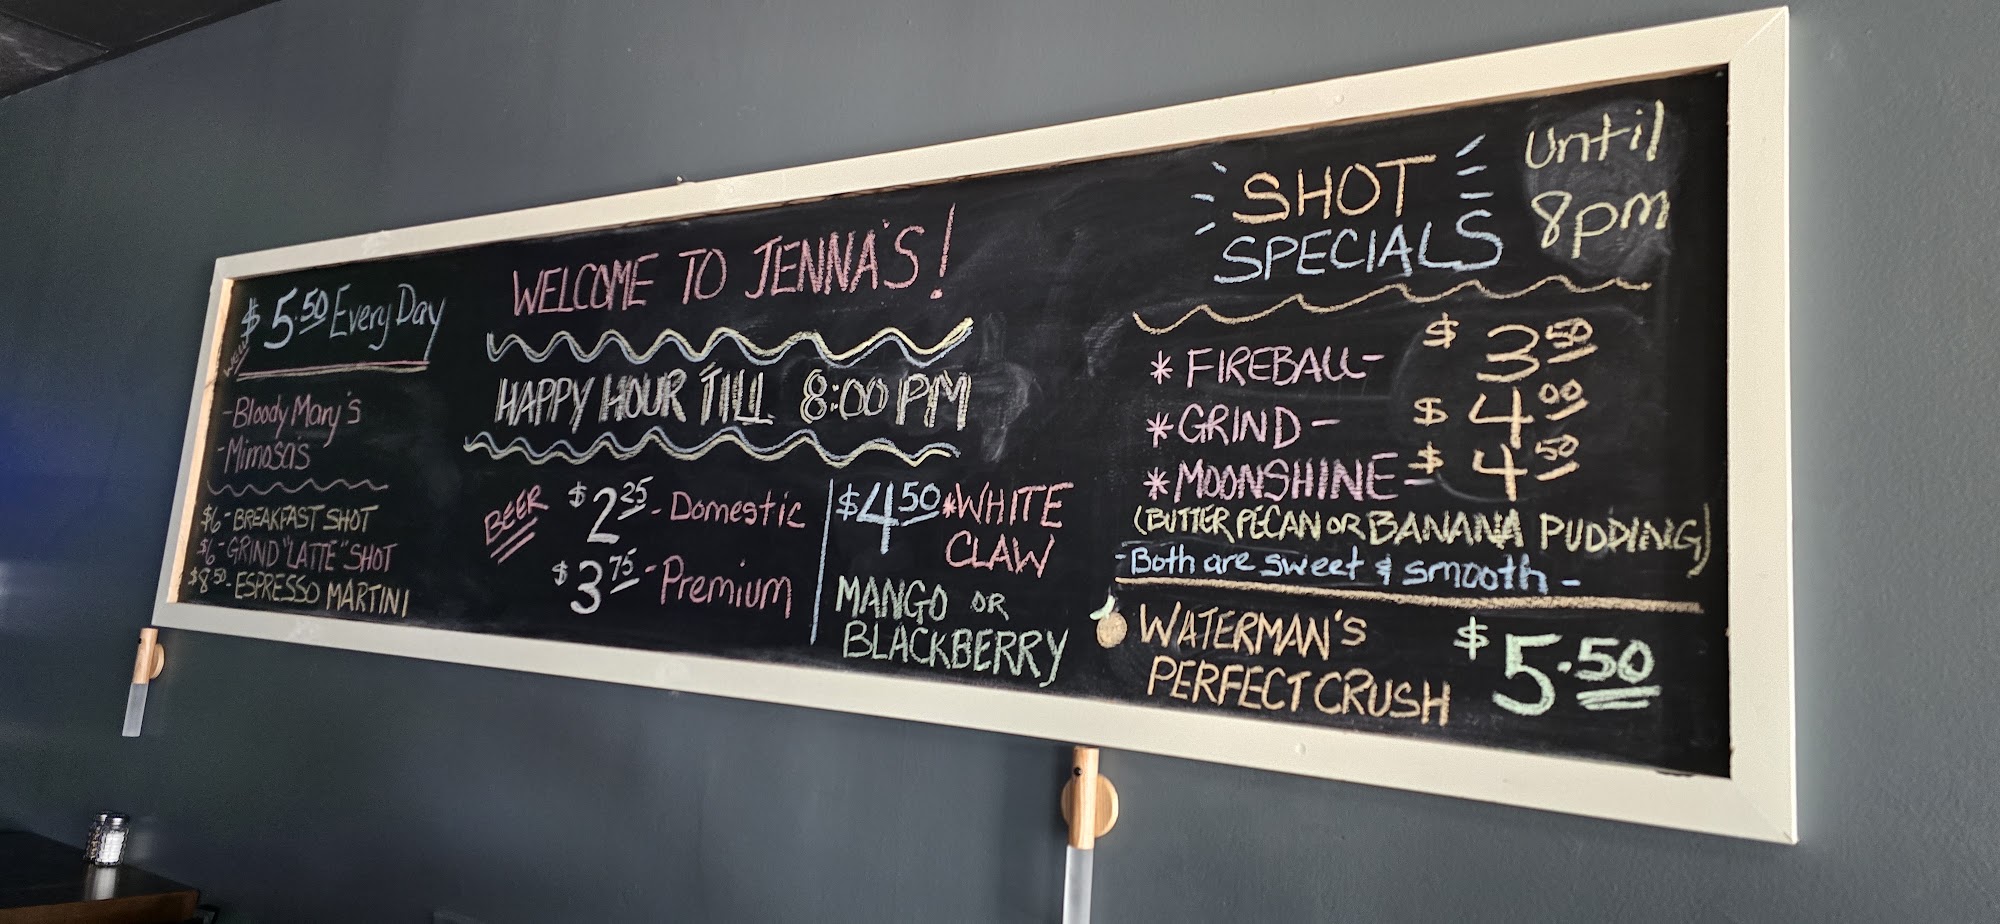 $5.50 Every Day
WELL
-Bloody Mary's
-Mimosa's
$6-BREAKFAST SHOT
$6-GRIND "LATTE" SHOT
$8.50-ESPRESSO MARTINI
WELCOME TO JENNA'S!
HAPPY HOUR TILL 8:00 PM
BEER
$2.25-Domestic
$3.75-Premium
$4.50 *WHITE
CLAW
MANGO OR
BLACKBERRY
SHOT
SPECIALS
until
8pm
*FIREBALL- $3.50
*GRIND- $4.00
*MOONSHINE- $4.50
(BUTTER PECAN OR BANANA PUDDING)
-Both are sweet & smooth-
WATERMAN'S
PERFECT CRUSH
$5.50